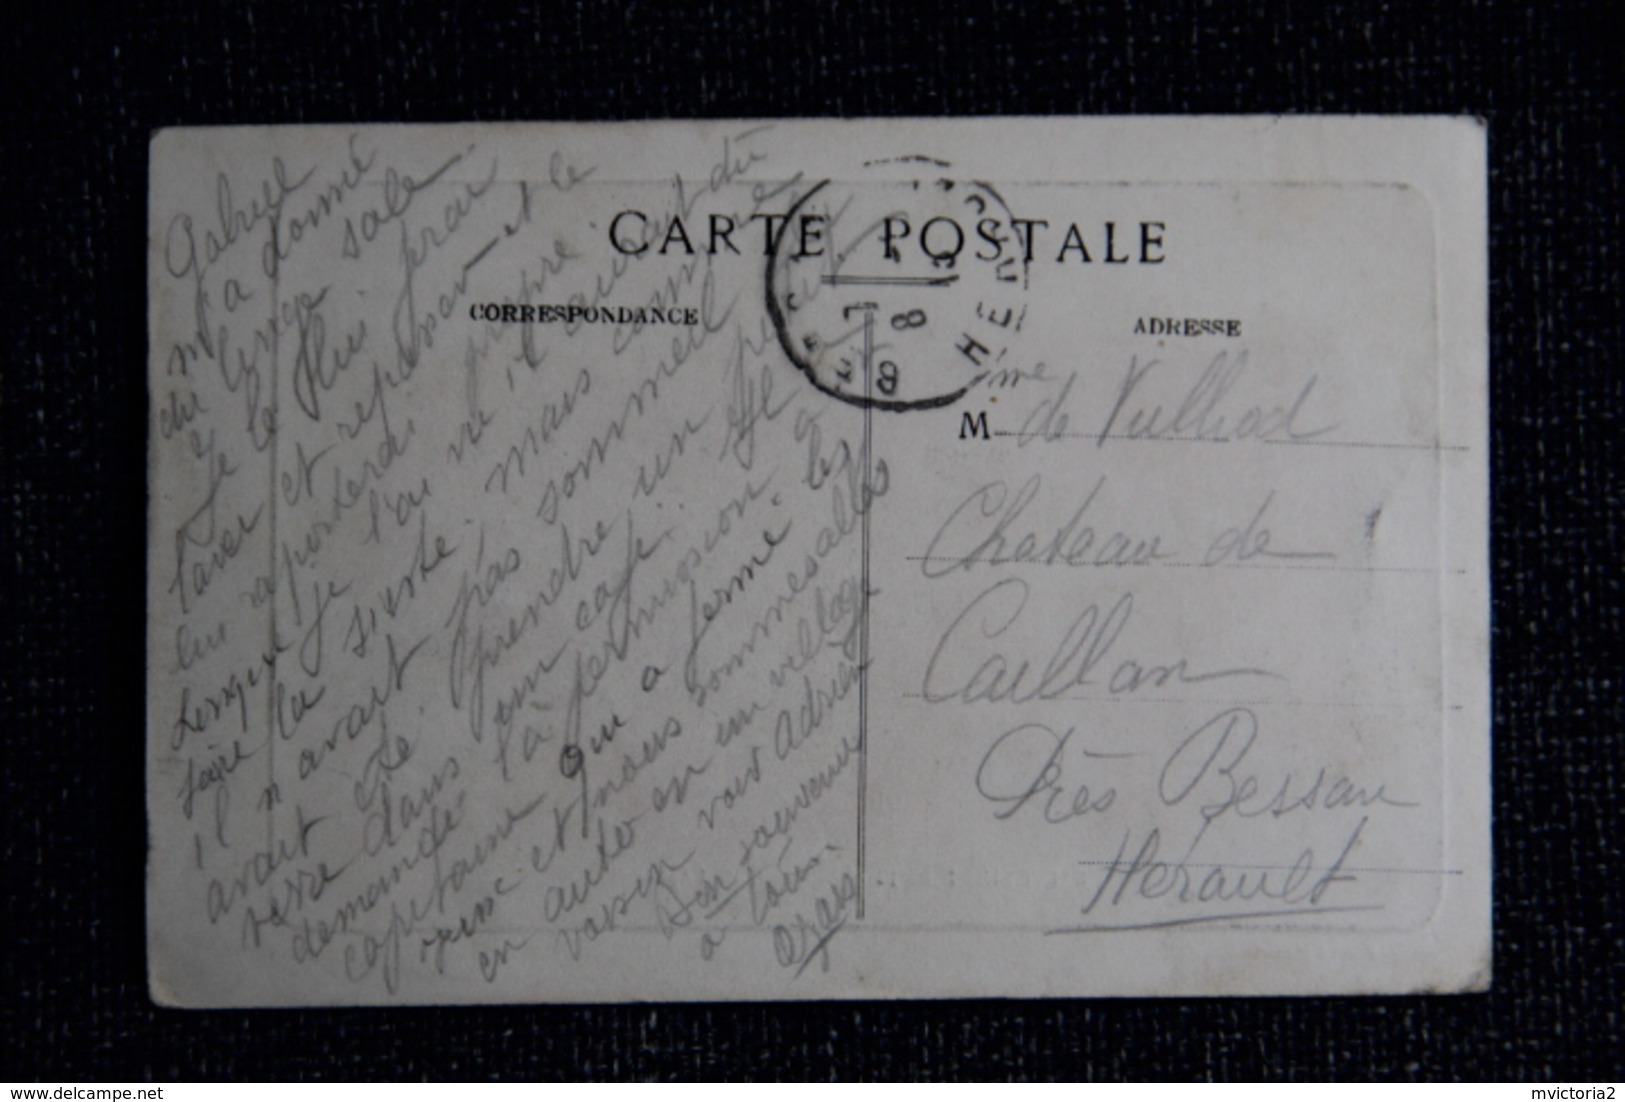 CARTE POSTALE
CORRESPONDANCE
ADRESSE
Gabriel
m'a donné
du linge sale
Je le lui ferai
laver et repasser et le
lui rapporterai propre.
Lorsque je l'ai vu il avait du
faire la sieste. mais comme
il n'avait pas sommeil
avait été prendre un
verre dans un café. Il
demandé là permission a
capitaine qui a fermé les
yeux et nous sommes allés
en auto en un village
voisin voir Adrien
Bon souvenir
a tous.
Mme de Vulliod
Chateau de
Caillan
Près Bessan
Hérault
HERAULT
BE
7
8
mvictoria2